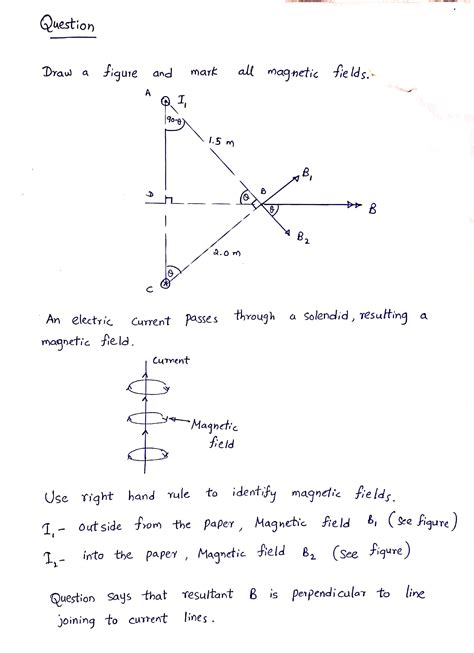 Question
Draw a figure and mark all magnetic fields.
A
I₁
90-θ
1.5 m
B₁
D
θ
B
θ
B
B₂
2.0 m
θ
C
An electric current passes through a solendid, resulting a
magnetic field.
Current
Magnetic
field
Use right hand rule to identify magnetic fields.
I₁- outside from the paper, Magnetic field B₁ (see figure)
I₂- into the paper, Magnetic field B₂ (see figure)
Question says that resultant B is perpendicular to line
joining to current lines.